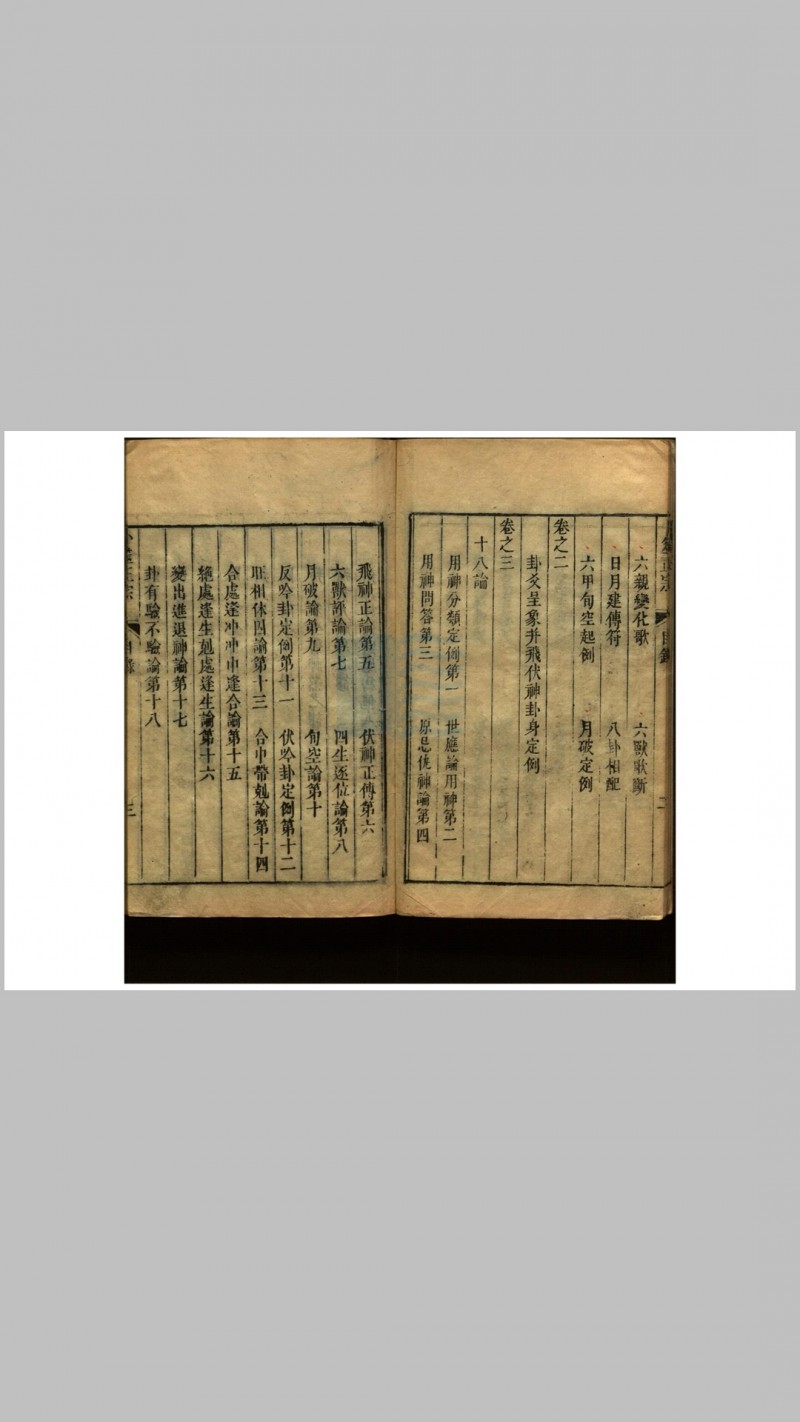 六親變化歌　六獸歌斷
日月建傳符　八卦相配
六甲旬空起例　月破定例
卷之二
卦爻呈象并飛伏神卦身定例
卷之三
十八論
用神分類定例第一　世應論用神第二
用神問答第三　原忌仇神論第四
飛神正論第五　伏神正傳第六
六獸評論第七　四生逐位論第八
月破論第九　旬空論第十
反吟卦定例第十一　伏吟卦定例第十二
旺相休囚論第十三　合中帶剋論第十四
合處逢冲冲中逢合論第十五
絕處逢生剋處逢生論第十六
變出進退神論第十七
卦有驗不驗論第十八
三